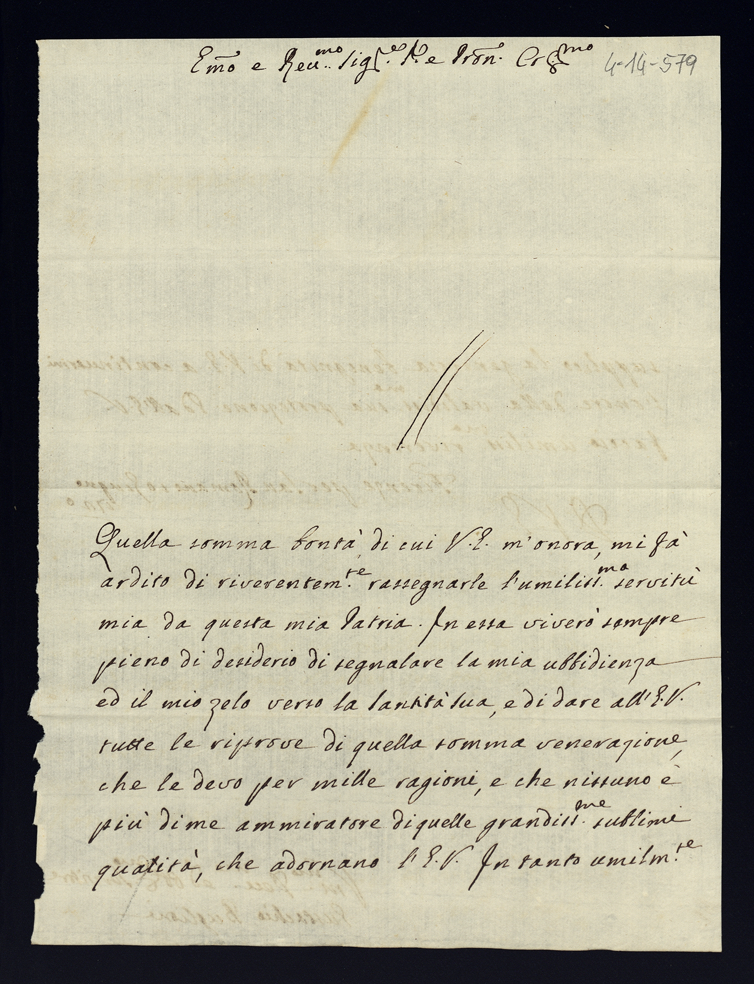 Emo e Reu.mo Sig.re P.e e Pron. Col.mo 4-14-579
Quella somma bontà, di cui V.E. m'onora, mi fà
ardito di riverentem.te rassegnarle l'umiliss.ma servitù
mia da questa mia Patria. In essa viverò sempre
pieno di desiderio di segnalare la mia ubbidienza
ed il mio zelo verso la Santità Sua, e di dare all'E.V.
tutte le riprove di quella somma venerazione,
che le devo per mille ragioni, e che nissuno è
più di me ammiratore di quelle grandiss.me sublimi
qualità, che adornano l'E.V. In tanto umilm.te